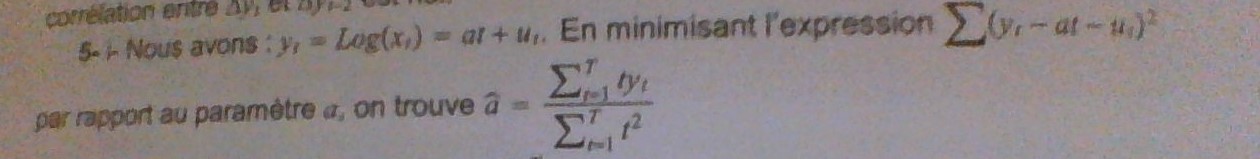 corrélation entre Δyₜ et Δyₜ₋₂ est
5- i- Nous avons : yₜ = Log(xₜ) = at + uₜ. En minimisant l'expression ∑(yₜ − at − uₜ)²
par rapport au paramètre a, on trouve â = ∑ᵀₜ₌₁ tyₜ / ∑ᵀₜ₌₁ t²